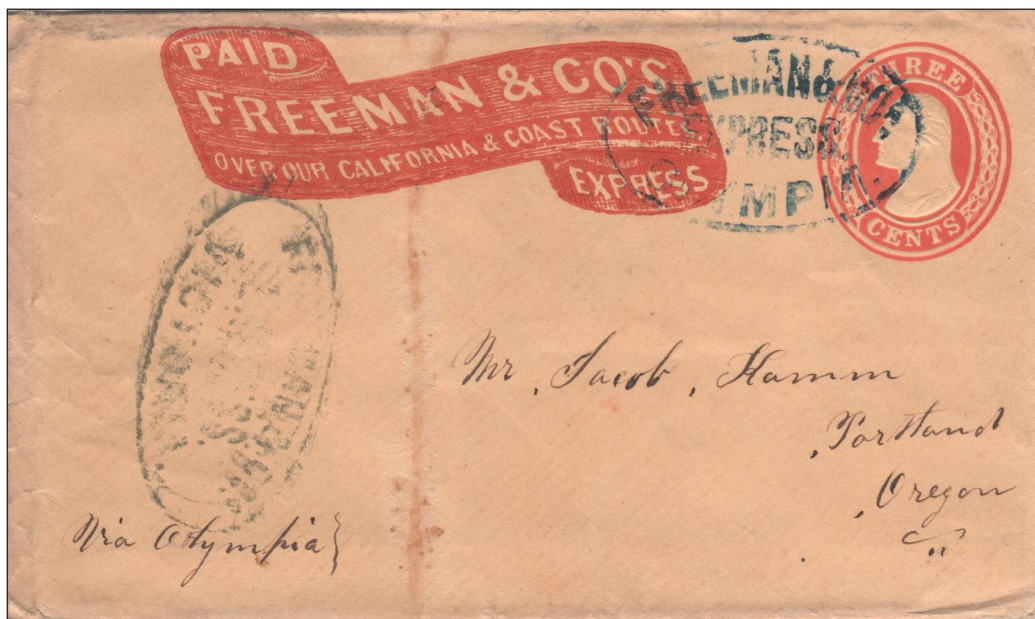 PAID
FREEMAN & CO'S
OVER OUR CALIFORNIA & COAST ROUTES
EXPRESS
FREEMAN & CO'S
EXPRESS.
OLYMPIA.
THREE
CENTS
VICTORIA
Mr. Jacob, Kamm
Portland
Oregon
Via Olympia